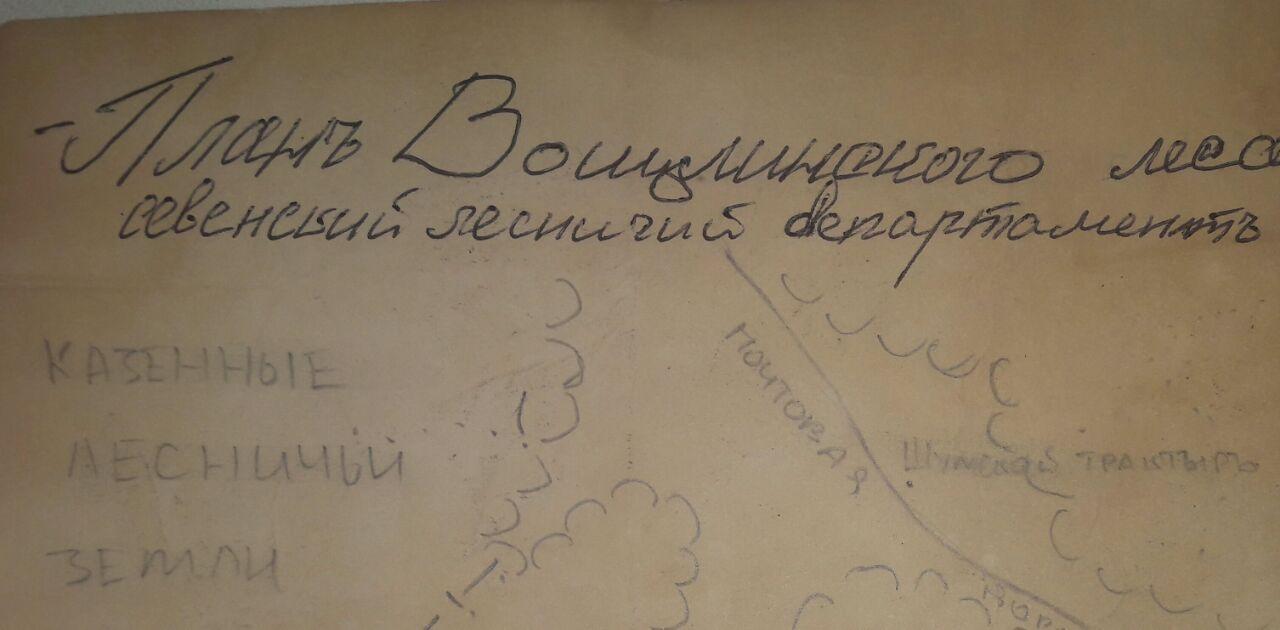 - Планъ Вощлинского леса
севенский лесничий департаментъ
КАЗЕННЫЕ
ЛЕСНИЧЬИ
ЗЕМЛИ
ПОЧТОВАЯ
Шумской трактыръ